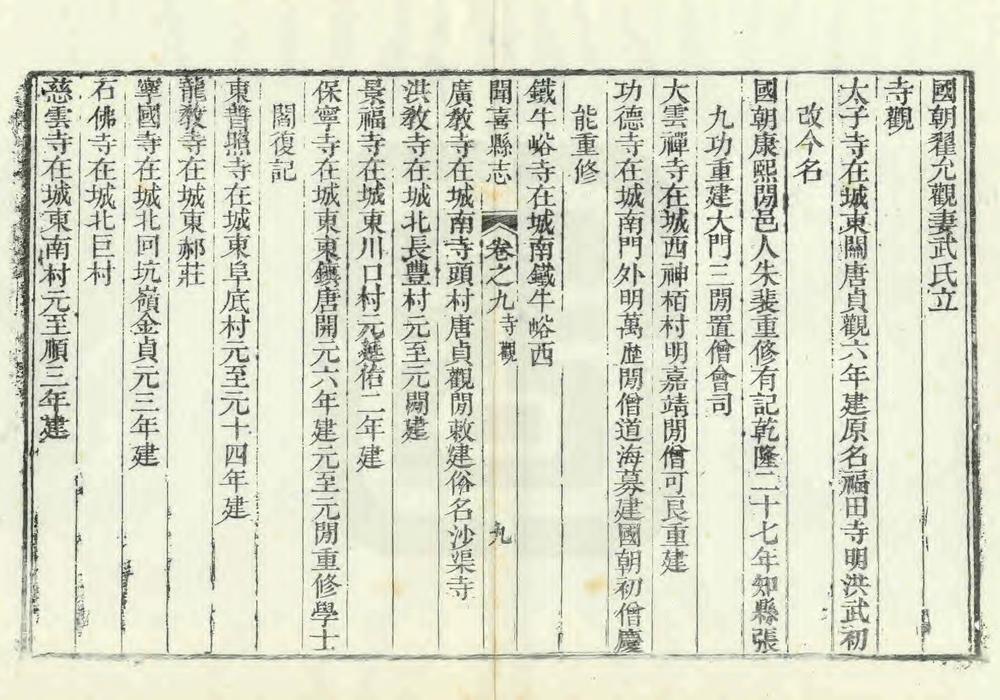 國朝翟允觀妻武氏立
寺觀
太子寺在城東關唐貞觀六年建原名福田寺明洪武初
改今名
國朝康熙閒邑人朱裴重修有記乾隆二十七年知縣張
九功重建大門三閒置僧會司
大雲禪寺在城西神栢村明嘉靖閒僧可良重建
功德寺在城南門外明萬歷閒僧道海募建國朝初僧慶
能重修
鐵牛峪寺在城南鐵牛峪西
聞喜縣志
卷之九
寺觀
九
廣教寺在城南寺頭村唐貞觀閒敕建俗名沙渠寺
洪教寺在城北長豐村元至元閒建
景福寺在城東川口村元延佑二年建
保寧寺在城東東鎮唐開元六年建元至元閒重修學士
閻復記
東普照寺在城東阜底村元至元十四年建
龍教寺在城東郝莊
寧國寺在城北回坑嶺金貞元三年建
石佛寺在城北巨村
慈雲寺在城東南村元至順三年建